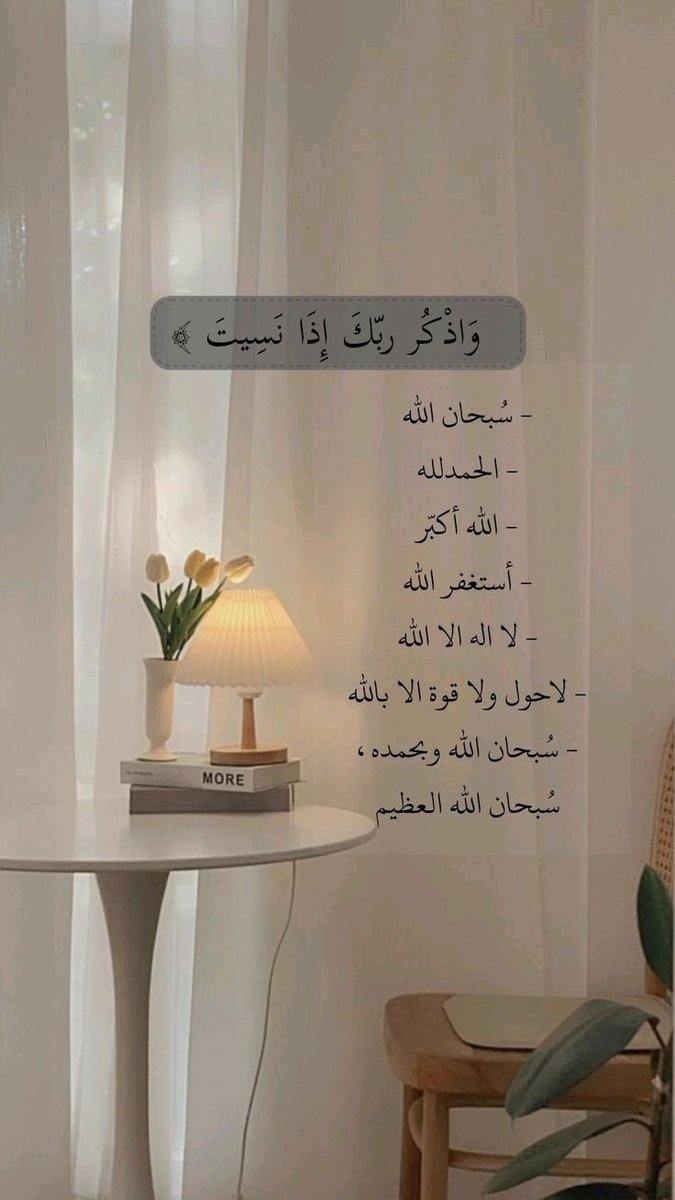 وَاذْكُر ربّكَ إِذَا نَسِيتَ ﴾
- سُبحان الله
- الحمدلله
- الله أكبّر
- أستغفر الله
- لا اله الا الله
- لاحول ولا قوة الا بالله
- سُبحان الله وبحمده ،
سُبحان الله العظيم
MORE